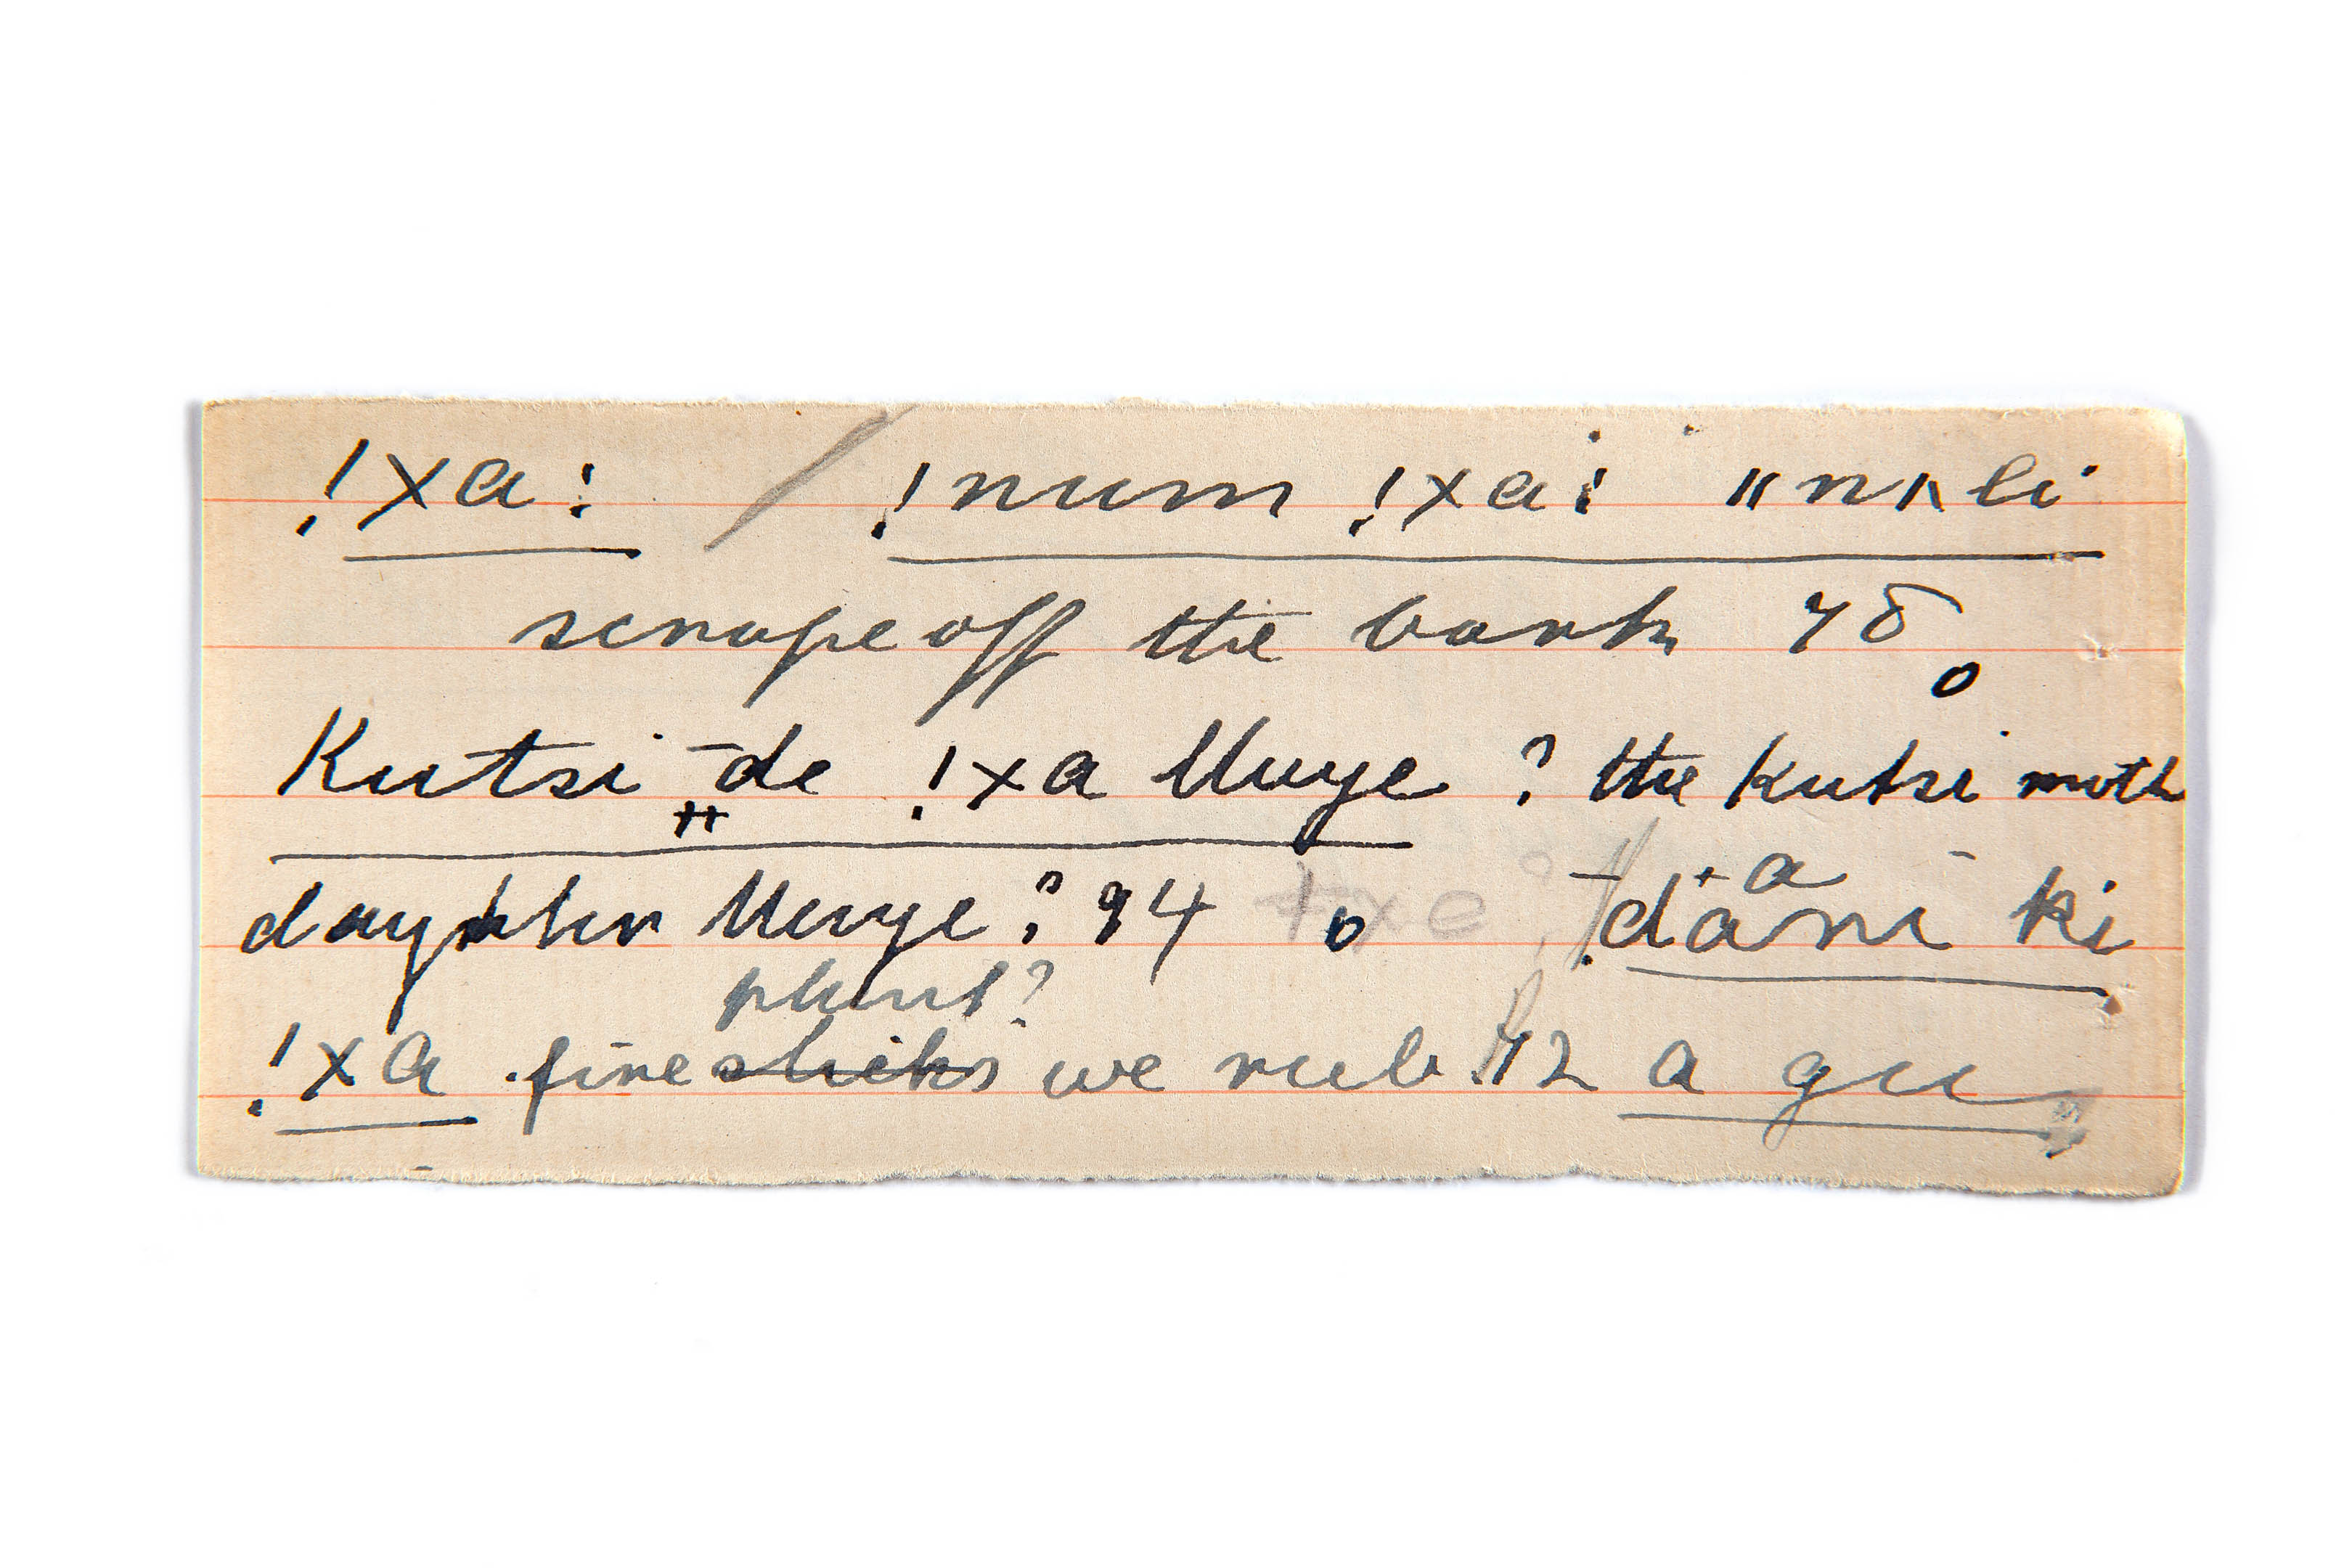 !xa: / !num !xa: "n\\ei
scrape off the bark 78
o
Kutsi de !xa Muye ? the Kutsi moth
daughter Muye? 94 o !dani ki
a
plant?
!xa fire sticks we rub 42 a gu